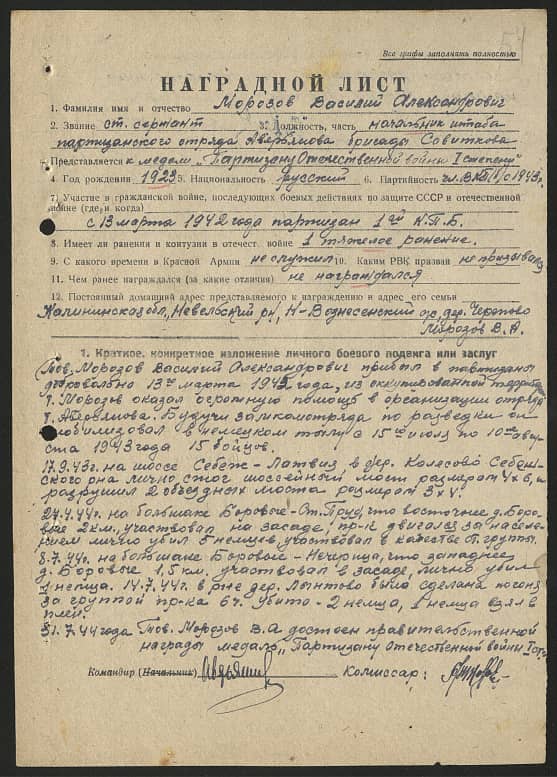 Все графы заполнять полностью
НАГРАДНОЙ ЛИСТ
1. Фамилия имя и отчество Морозов Василий Александрович
2. Звание ст. сержант 3. Должность, часть начальник штаба
партизанского отряда бригады
Представляется к медели „Партизану Отечественной войны I степени"
4 Год рождения 1923 5. Национальность русский 6. Партийность чл. ВКП(б) с 1943г.
7) Участие в гражданской войне, последующих боевых действиях по защите СССР и отечественной
войне (где и когда)
с 13 марта 1942 года партизан 1ой К.П.Б.
8. Имеет ли ранения и контузии в отечест. войне 1 тяжелое ранение.
9. С какого времени в Красной Армии не служил 10. Каким РВК призван не призывался
11. Чем ранее награждался (за какие отличия) не награждался
12. Постоянный домашний адрес представляемого к награждению и адрес его семьи
Калининская обл., Невельский рн, Н-Вознесенский с/с, дер. Черепово
Морозов В.А.
1. Краткое, конкретное изложение личного боевого подвига или заслуг
Тов. Морозов Василий Александрович прибыл в партизаны
добровольно 13го марта 1942 года, из оккупированной
т. Морозов оказал огромную помощь в организации отряда
т. Будучи зам. комотряда по разведки он
мобилизовал в немецком тылу с 15го июля по 10ое авгу-
ста 1943 года 15 бойцов.
17.9.43г. на шоссе Себеж - Латвия в дер. Колесово Себеж-
ского рна лично сжог шоссейный мост размером 4х6, и
разрушил 2 объездных моста размером 3х4.
на большаке Боровые - что восточнее д. Боро-
вые 2км., участвовал на засаде, пр-к двигался за населе-
нием лично убил 5 немцев, участвовал в качестве группы.
8.7.44г. на большаке Боровые - Нечерица, что западнее
д. Боровые 1,5 км. участвовал в засаде, лично убил
1 немца. 14.7.44г. в рне дер. была сделана погоня
за группой пр-ка 6ч. убито - 2 немца, 1 немца взял в
плен.
31.7.44 года Тов. Морозов В.А достоен правительственной
награды медаль „Партизану Отечественной войны I ст."
Командир (Начальник) Комиссар: